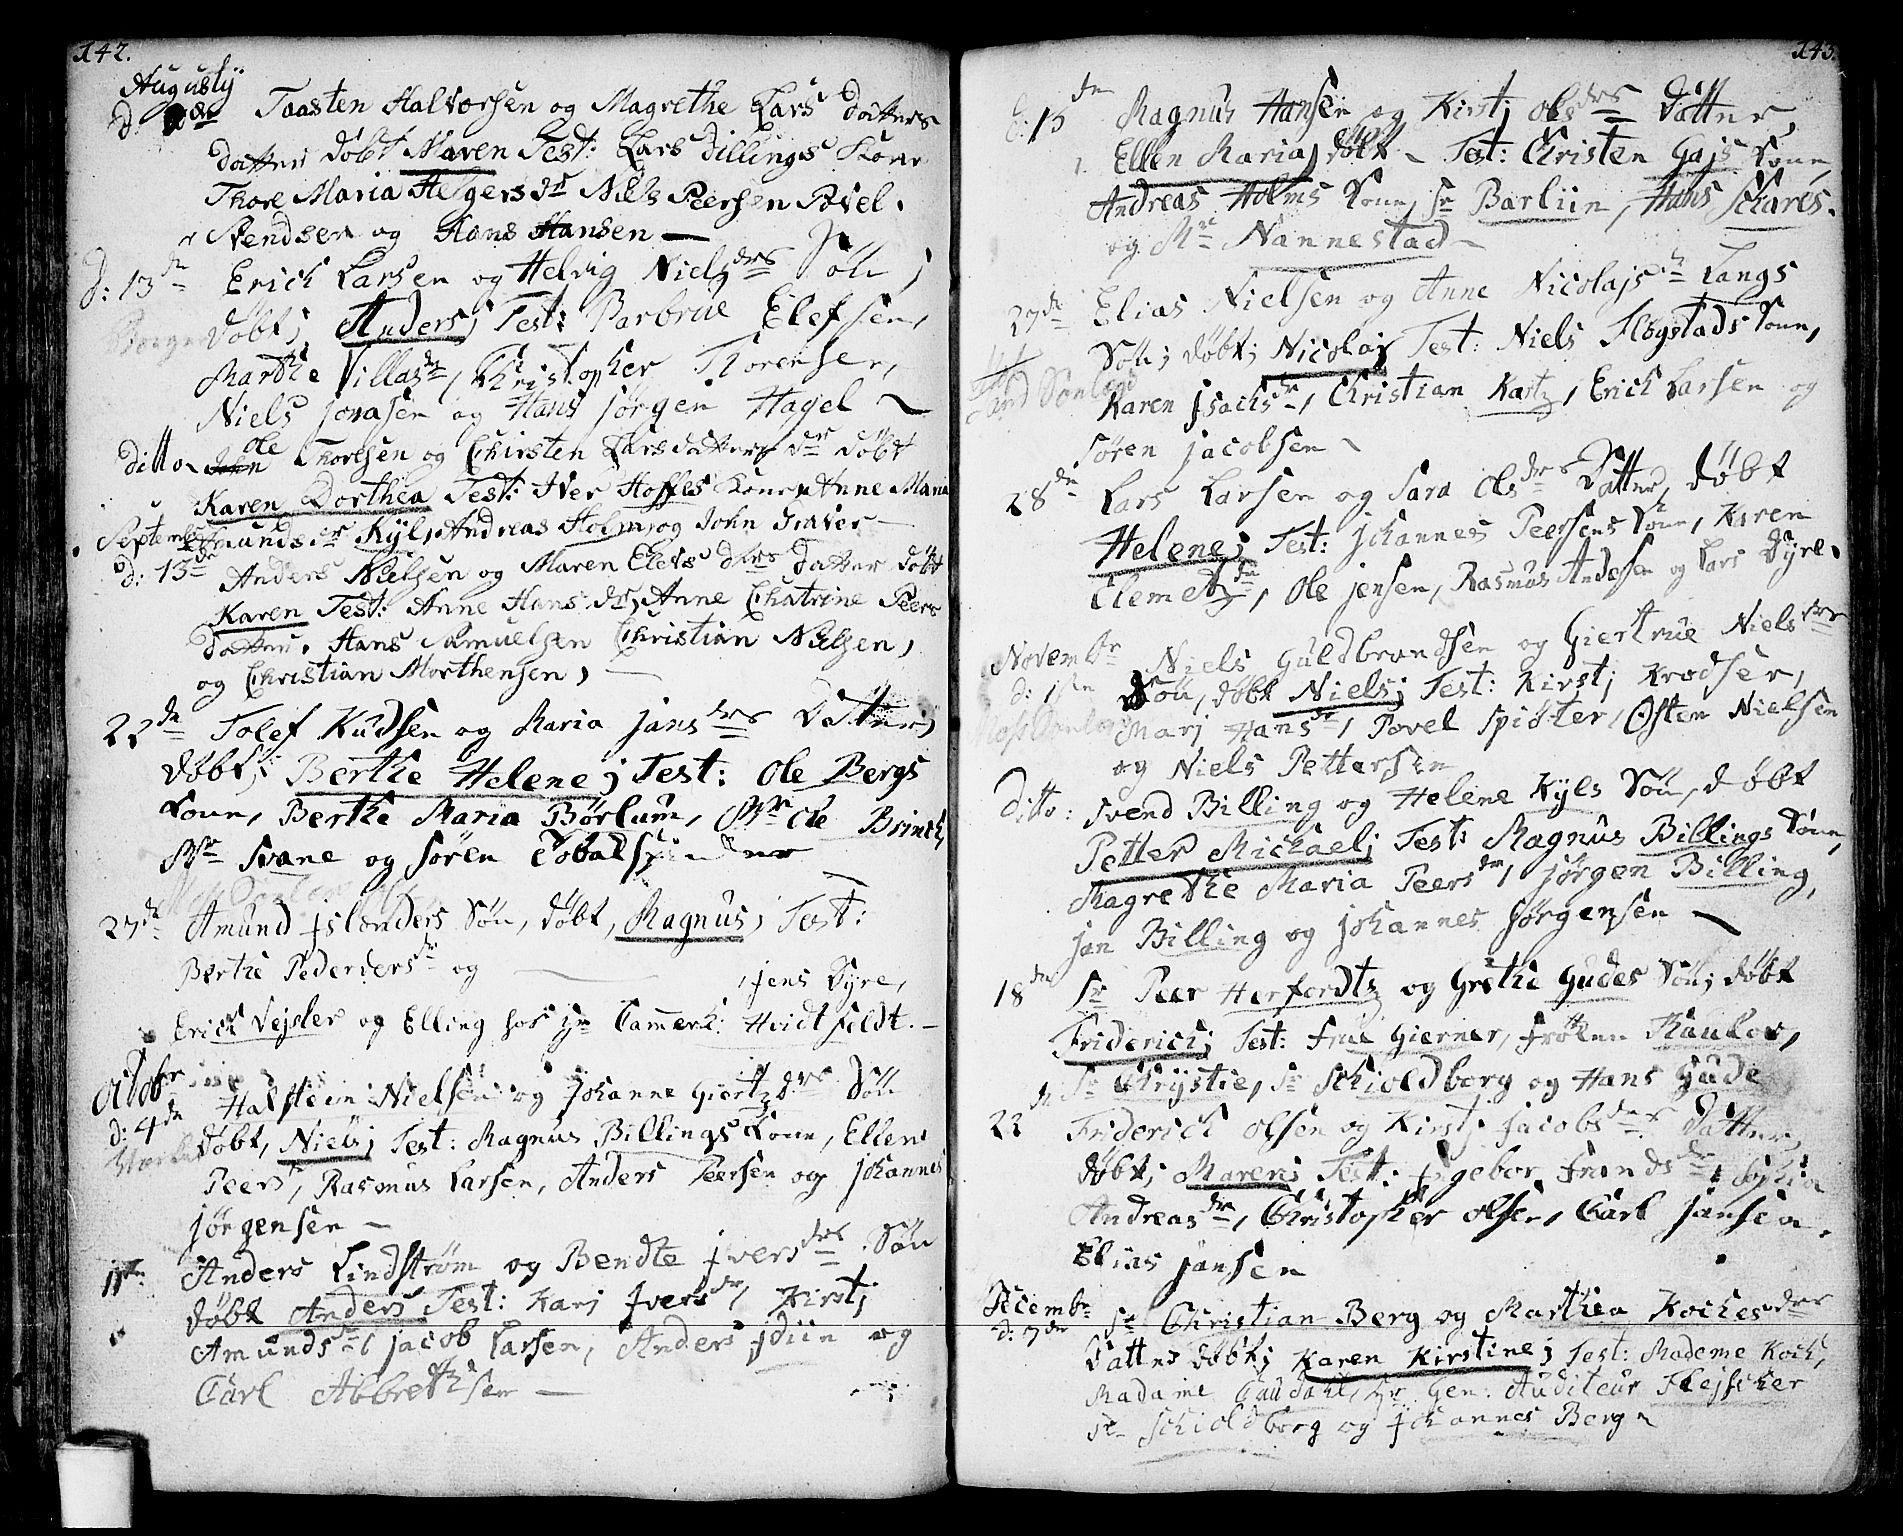 142.
Augusty
d. de Taasten Halvorsen og Magrethe Lars Datters
Datter døbt Maren Test: Lars Dillings Kone
Thore Maria Helgers dr Niels Peersen Povel
Svendsen og Hans Hansen
d: 13de Erich Larsen og Helvig Niels drs Søn;
døbt; Anders; Test: Barbrue Elefsen,
Marthe Villas dr, Christopher Thorensen,
Niels Jonasen og Hans Jørgen Hagel
ditto Ole Thoresen og Chirsten Larsdatters dr døbt
Karen Dorthea Test: Iver Hoffes Kone, Anne Maria
Amunds dr Kyl, Andreas Holm, og John Traver
September
d: 13de Anders Nielsen og Maren Elefs drs Datter døbt
Karen Test: Anne Hans dr, Anne Chatrine Peers
Datter, Hans Samuelsen Christian Nielsen,
og Christian Morthensen,
22de Tolef Kudsen og Maria Jans drs Datter;
døbt; Berthe Helene; Test: Ole Bergs
Kone, Berthe Maria Børlum, Mr Ole Brinch,
Mr Svane og Søren Tobakspinder
27de Amund Islænders Søn, døbt, Magnus; Test:
Berthe Peders dr og , Jens Dyre,
Erich Vejsler og Elling hos Hr Camerh: Hvidtfeldt.
Octobr
d: 4de Halstein Nielsen og Johanne Giertz drs Søn
døbt, Niels; Test: Magnus Billings Kone, Ellen
Peers, Rasmus Larsen, Anders Peersen og Johannes
Jørgensen
11te Anders Lindstrøm og Bendte Ivers drs Søn
døbt Anders Test: Kari Ivers dr, Kirsti
Amunds dr, Jacob Larsen, Anders Idiin og
Carl Abbrethsen
143.
d: 15de Magnus Hansen og Kirsti Ols drs Datter,
Ellen Maria, døbt Test: Christen Gajs Kone,
Andreas Holms Kone, Sr Barliin, Hans Schares.
og Mr Nannestad
27de Elias Nielsen og Anne Nicolajs dr Langs
Søn; døbt; Nicolaj Test: Niels Fløgstads Kone,
Karen Isachs dr, Christian Kartz, Erich Larsen og
Søren Jacobsen
28de Lars Larsen og Sara Ols drs Datter, døbt
Helene; Test: Johannes Peersens Kone, Karen
Clemetz dr, Ole Jensen, Rasmus Andersen og Lars Dyre.
Novembr
d: 1ste Niels Guldbrandsen og Giertrue Niels drs
Søn, døbt Niels; Test: Kirsti Krødser,
Mari Hans dr, Povel Spiøter, Østen Nielsen
og Niels Pettersen
Ditto: Svend Billing og Helene Kyls Søn, døbt
Petter Michael; Test: Magnus Billings Kone,
Magrethe Maria Peers dr, Jørgen Billing,
Jan Billing og Johannes Jørgensen
18de Sr Peer Herfordtz og Grethe Gudes Søn; døbt
Friderich; Test: Frue Gierner, Frøken Kaulov,
Sr Chrystie, Sr Schioldborg og Hans Gude
22de Friderich Olsen og Kirsti Jacobs drs Datter,
døbt; Maren; Test: Ingebor Frinds dr, Sophia
Andreas dr, Christopher Olsen, Carl Jansen,
Elias Jansen
Decembr
d: 7de Sr Christian Berg og Marthea Koches drs
Datter døbt; Karen Kirstine; Test: Madame Koch,
Madame Gaudahl, Hr Gen: Auditeur Flejscher
Sr Schioldborg og Johannes Berg